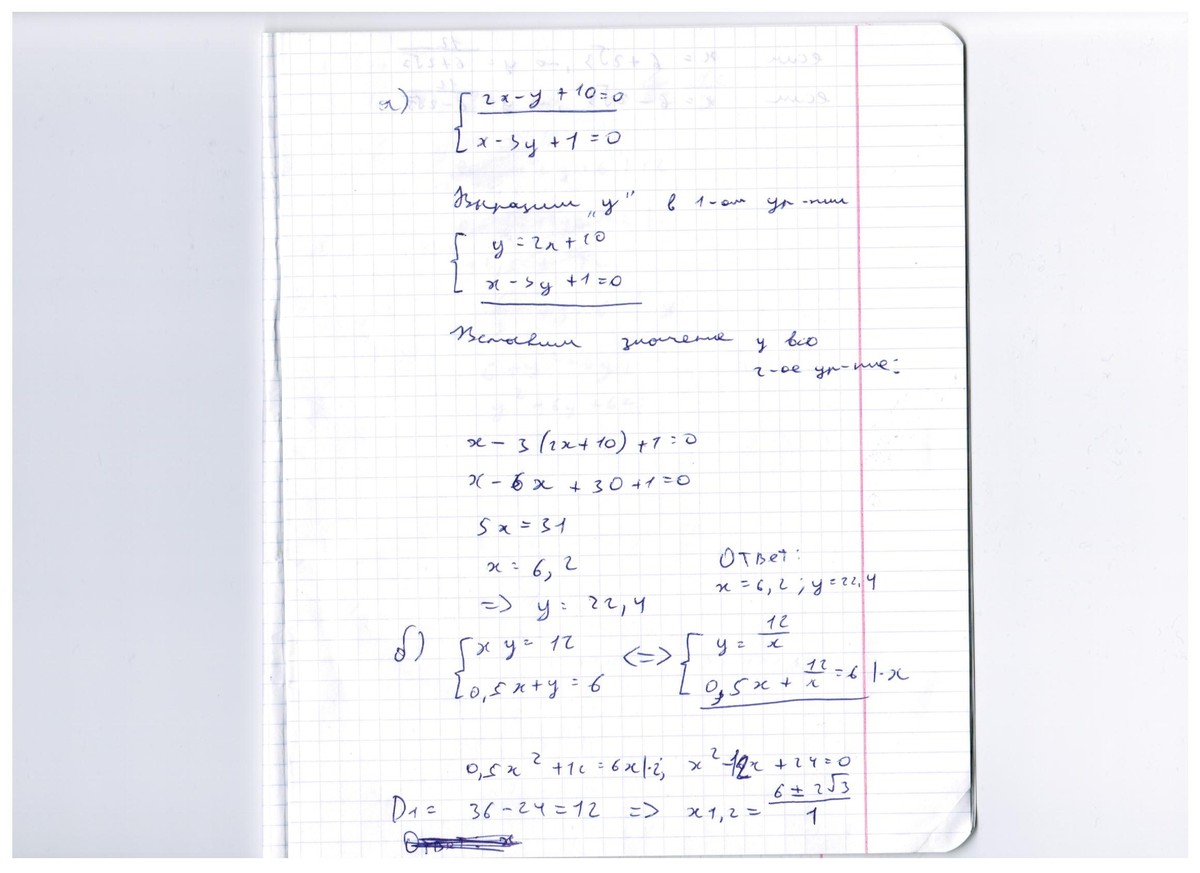 а) { 2x - y + 10 = 0
x - 3y + 1 = 0
Выразим „y" в 1-ом ур-нии
{ y = 2x + 10
x - 3y + 1 = 0
Вставим значение y во
2-ое ур-ние:
x - 3(2x + 10) + 1 = 0
x - 6x + 30 + 1 = 0
5x = 31
x = 6,2
=> y = 22,4
Ответ:
x = 6,2; y = 22,4
б) { xy = 12 <=> { y = 12/x
0,5x + y = 6 0,5x + 12/x = 6 |·x
0,5x² + 12 = 6x |·2; x² - 12x + 24 = 0
D1 = 36 - 24 = 12 => x1,2 = (6 ± 2√3)/1